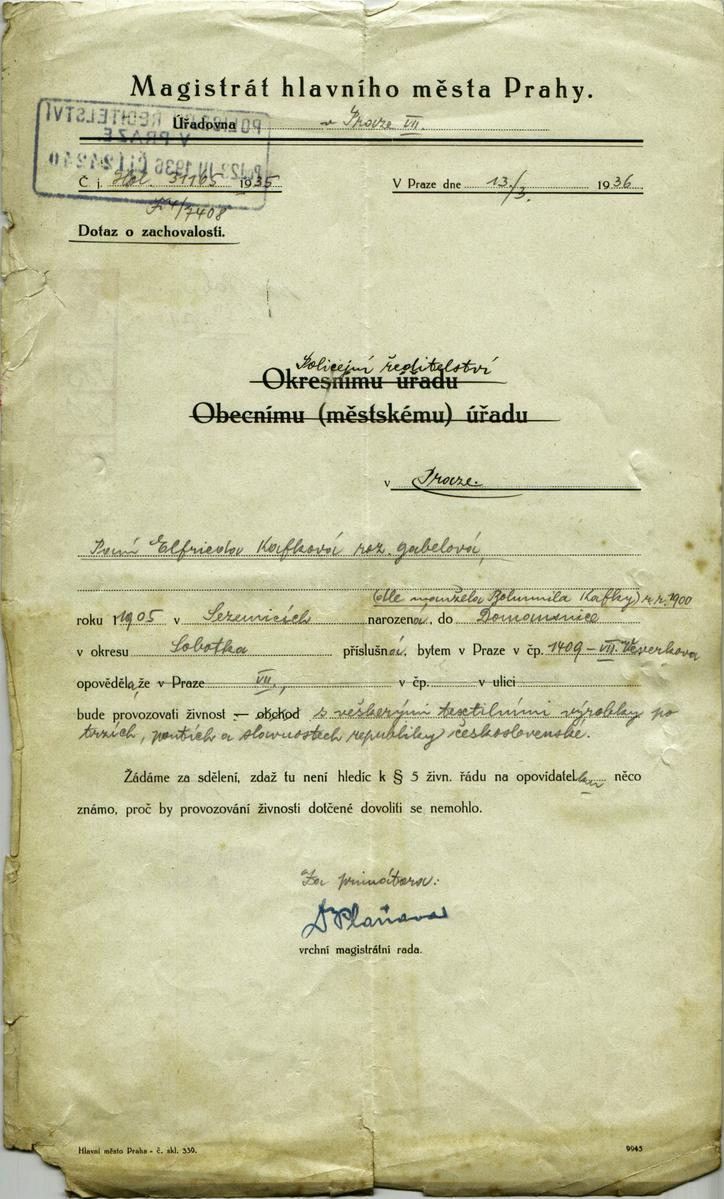 Magistrát hlavního města Prahy.
Úřadovna v Praze VII.
POLICEJNÍ ŘEDITELSTVÍ
V PRAZE
1936
Č j. 31105 1935 V Praze dne 13./3. 1936
/7408
Dotaz o zachovalosti.
Policejní ředitelství
Okresnímu úřadu
Obecnímu (městskému) úřadu
v Praze.
Paní Elfrieda Kafková roz. Gabelová,
(dle manžela Bohumila Kafky) r. 1900
roku 1905 v Sezemicích narozena, do Domousnice
v okresu Sobotka příslušná, bytem v Praze v čp. 1409 – VII. Veverkova
opověděla, že v Praze VII., v čp. v ulici
bude provozovati živnost — obchod s veškerými textilními výrobky po
trzích, poutích a slavnostech republiky československé.
Žádáme za sdělení, zdaž tu není hledíc k § 5 živn. řádu na opovídatelku něco
známo, proč by provozování živnosti dotčené dovoliti se nemohlo.
Za primátora:
vrchní magistrátní rada.
Hlavní město Praha - č. skl. 339. 9945